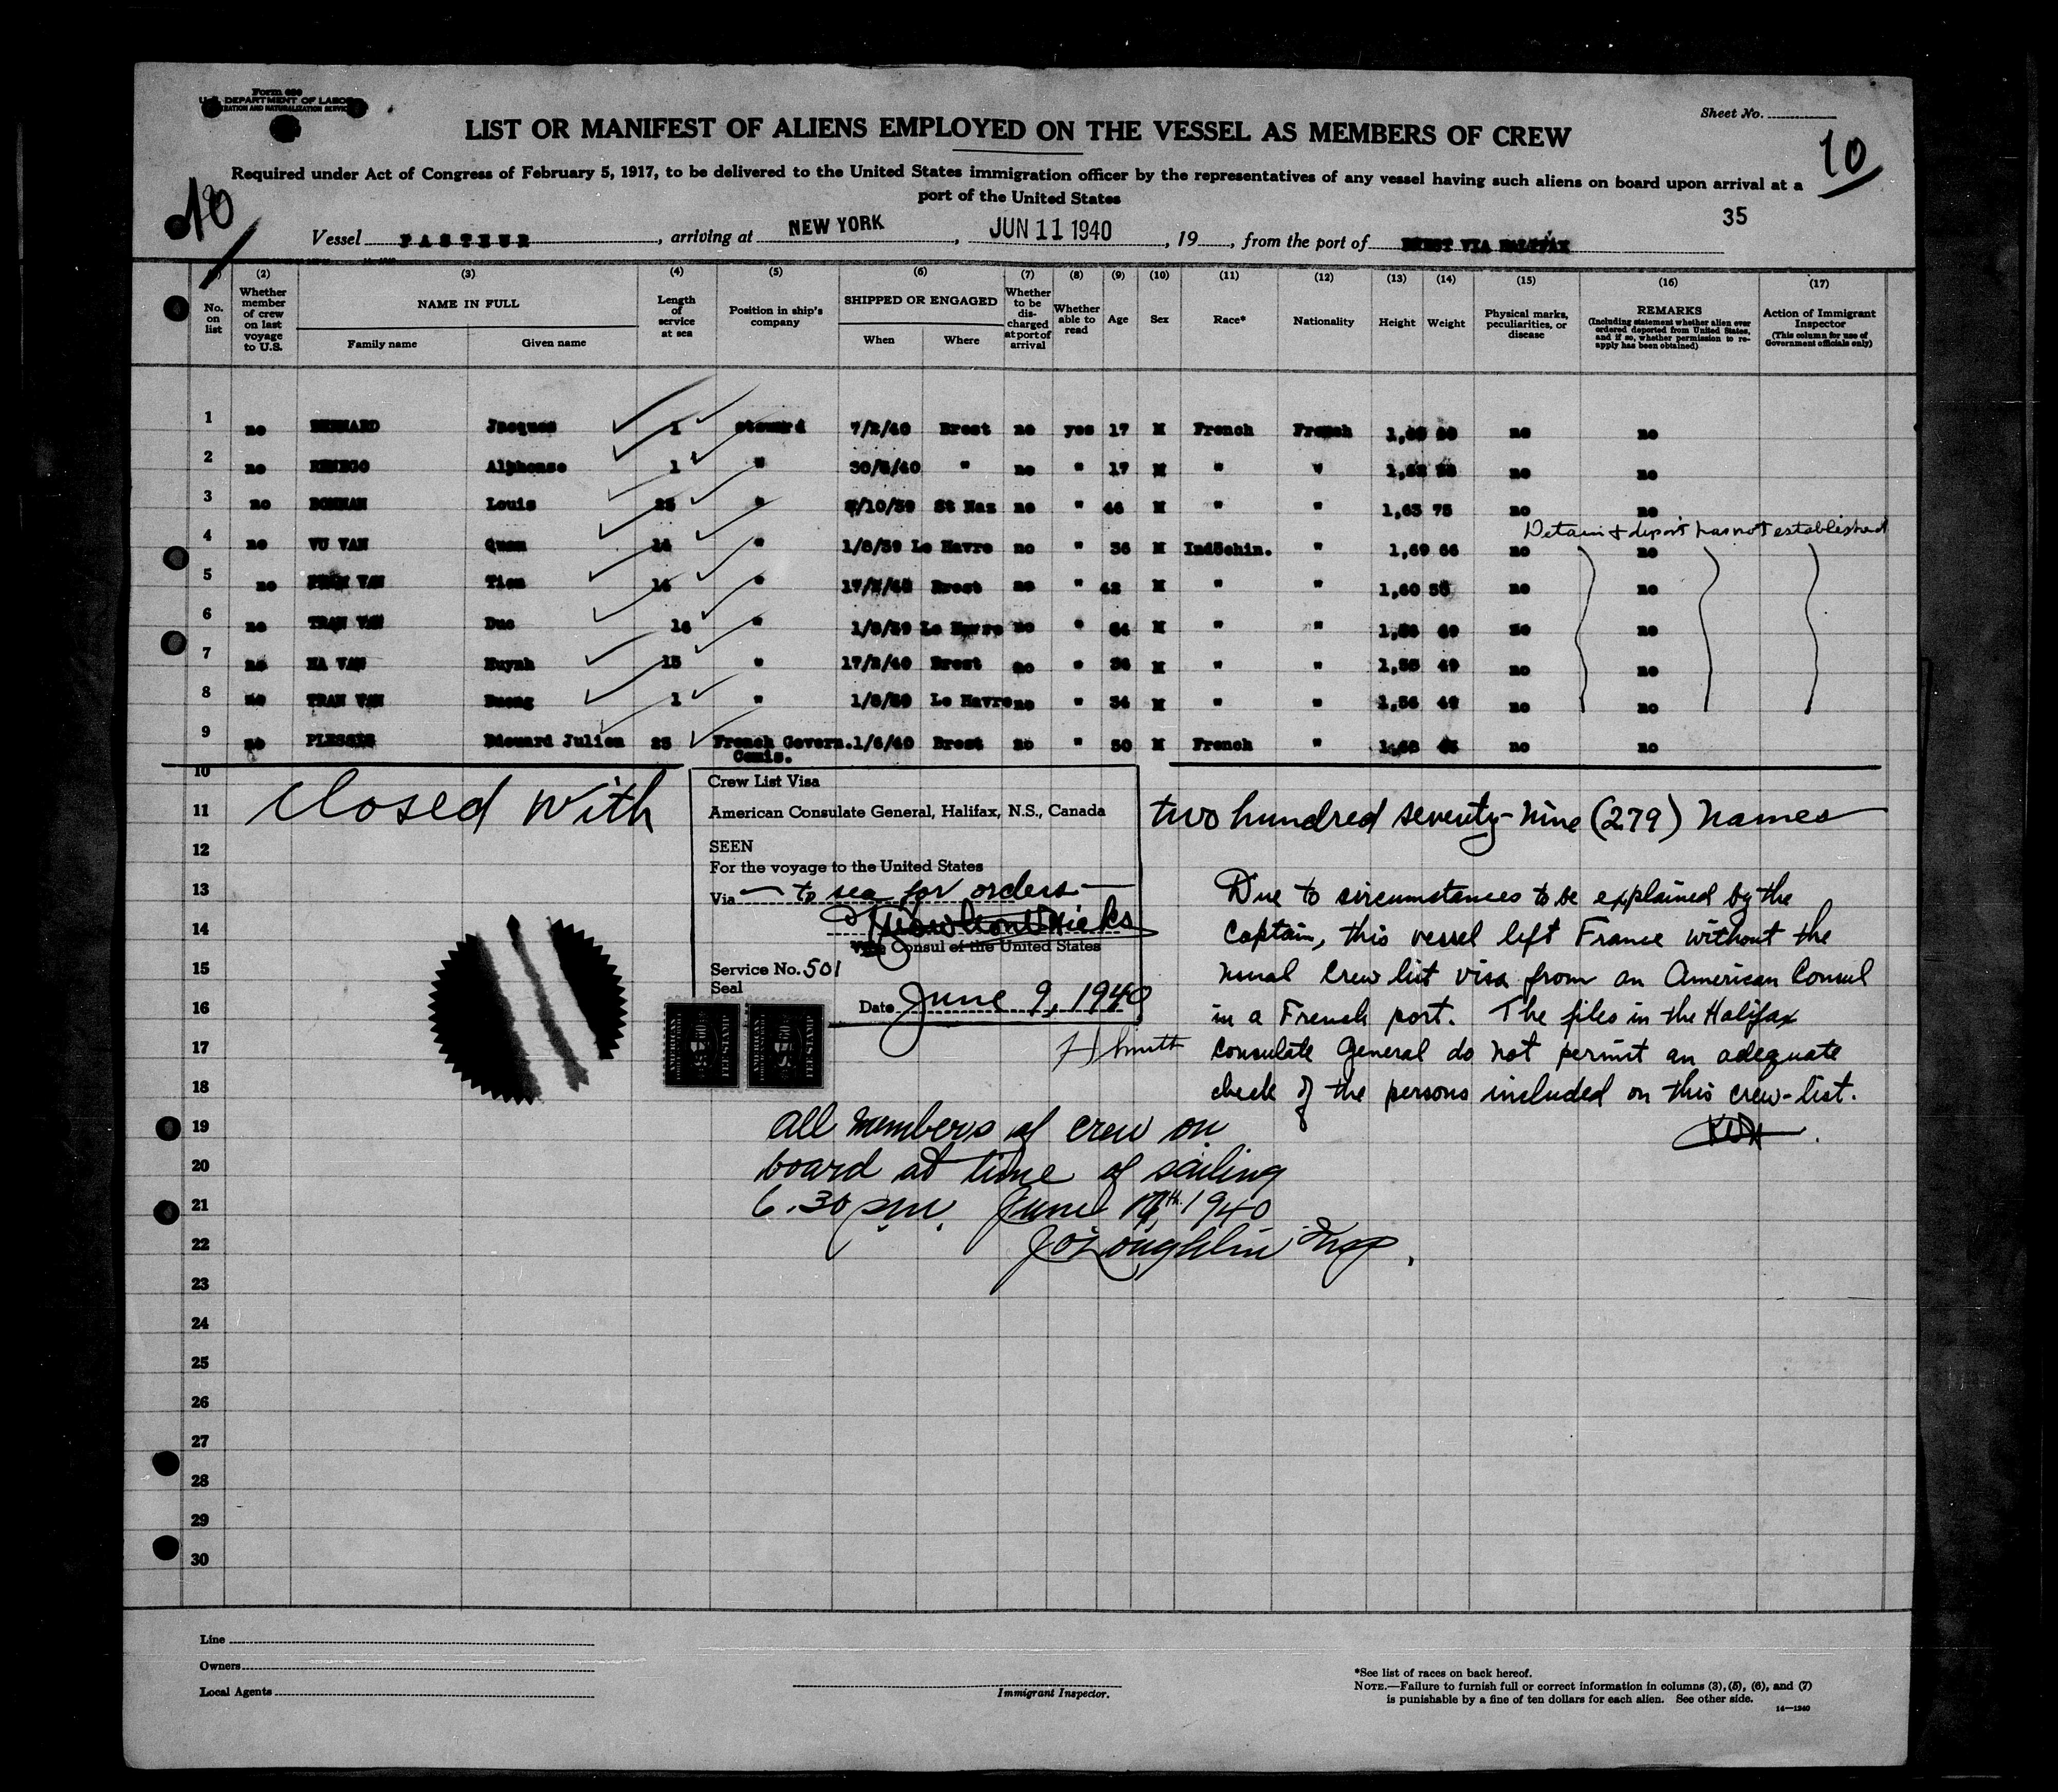 Form 680
U. S. DEPARTMENT OF LABOR
IMMIGRATION AND NATURALIZATION SERVICE
Sheet No.
LIST OR MANIFEST OF ALIENS EMPLOYED ON THE VESSEL AS MEMBERS OF CREW
10
10
Required under Act of Congress of February 5, 1917, to be delivered to the United States immigration officer by the representatives of any vessel having such aliens on board upon arrival at a
port of the United States
35
Vessel PASTEUR, arriving at NEW YORK, JUN 11 1940, 19, from the port of BREST VIA HALIFAX
(2) (3) (4) (5) (6) (7) (8) (9) (10) (11) (12) (13) (14) (15) (16) (17)
No. on list
Whether member of crew on last voyage to U.S.
NAME IN FULL
Family name
Given name
Length of service at sea
Position in ship's company
SHIPPED OR ENGAGED
When
Where
Whether to be discharged at port of arrival
Whether able to read
Age
Sex
Race*
Nationality
Height
Weight
Physical marks, peculiarities, or disease
REMARKS
(Including statement whether alien ever ordered deported from United States, and if so, whether permission to re-apply has been obtained)
Action of Immigrant Inspector
(This column for use of Government officials only)
1 no Jacques 1 steward 7/2/40 Brest no yes 17 M French French no no
2 no Alphonse 1 " " no " 17 M " " no no
3 no Louis 25 " St Naz no " 46 M " " 1,63 75 no no
Detain & deport has not established
4 no VU VAN 14 " 1/8/39 Le Havre no " 36 M Indochin. " 1,69 66 no no
5 no Tien 14 " Brest no " 42 M " " 1,60 no no
6 no TRAN VAN Duc 14 " 1/8/39 Le Havre no " M " " no no
7 no HA VAN Huynh 15 " 17/2/40 Brest no " 36 M " " 49 no no
8 no TRAN VAN 1 " 1/8/39 Le Havre no " 34 M " " 49 no no
9 no PLESSIS Edouard Julien 25 French Govern. 1/6/40 Brest no " 50 M French " no no
Comis.
10
11
12
13
14
15
16
17
18
19
20
21
22
23
24
25
26
27
28
29
30
closed with
two hundred seventy-nine (279) names
Crew List Visa
American Consulate General, Halifax, N.S., Canada
SEEN
For the voyage to the United States
Via to sea for orders
Vice Consul of the United States
Service No. 501
Seal
Date June 9, 1940
H Smith
AMERICAN
FEE STAMP
AMERICAN
FEE STAMP
Due to circumstances to be explained by the
Captain, this vessel left France without the
usual crew list visa from an American Consul
in a French port. The files in the Halifax
Consulate General do not permit an adequate
check of the persons included on this crew-list.
All members of crew on
board at time of sailing
6.30 pm. June 1940
J O'Loughlin Insp.
Line
Owners
Local Agents
Immigrant Inspector.
*See list of races on back hereof.
NOTE.—Failure to furnish full or correct information in columns (3), (5), (6), and (7)
is punishable by a fine of ten dollars for each alien. See other side.
14—1240